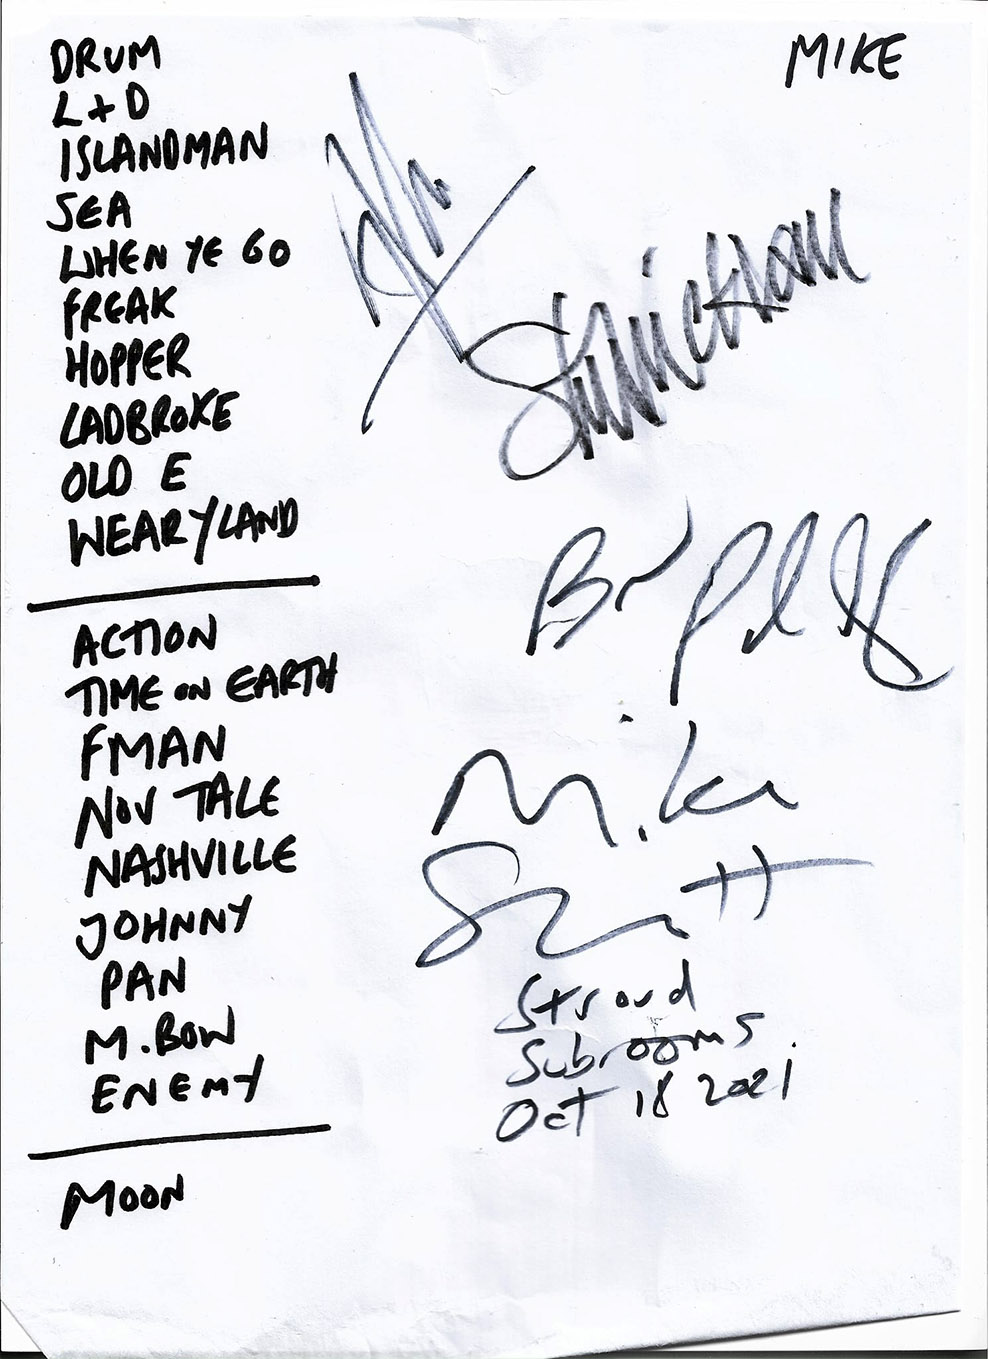 MIKE
DRUM
L+D
ISLANDMAN
SEA
WHEN YE GO
FREAK
HOPPER
LADBROKE
OLD E
WEARYLAND
ACTION
TIME ON EARTH
FMAN
NOV TALE
NASHVILLE
JOHNNY
PAN
M.BOW
ENEMY
MOON
Mike
Scott
Stroud
Subrooms
Oct 18 2021